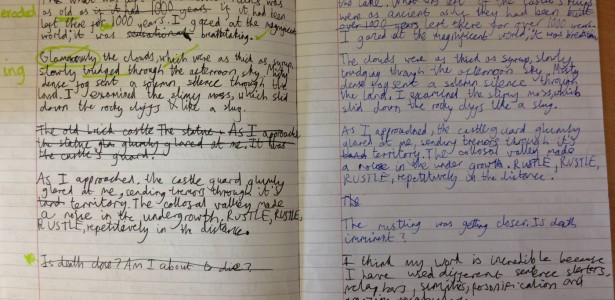 eroded
as old as it had 1000 years if it had been
left there for 1000 years. I gazed at the magnificent
world; it was sensational breathtaking.
ing
Glamorously the clouds, which were as thick as syrup,
slowly trudged through the afternoon sky. Misty
dense fog sent a solemn silence through the
land. I examined the slimey moss, which slid
down the rocky clyffs like a slug.
The old brick castle The statue As I approached
the statue glumly glared at me. It was
the castle's guard.
As I approached, the castle guard glumly
glared at me, sending tremors through it's
land territory. The collosal valley made
a noise in the undergrowth. RUSTLE, RUSTLE,
RUSTLE, repetitively in the distance.
Is death close? Am I about to die?
were as ancient as if they had been left
over 1000 years left there for over 1000 years
I gazed at the magnificent world; it was
The clouds were as thick as syrup, slowly
trudging through the afternoon sky. Misty
dense fog sent a solemn silence through
the land. I examined the slimy moss, which
slid down the rocky clyffs like a slug.
As I approached, the castle guard glumly
glared at me, sending tremors through it's
land territory. The collosal valley made
a noise in the under growth. RUSTLE, RUSTLE,
RUSTLE, repetitively in the distance.
The
The rustling was getting closer. Is death
imminent?
I think my work is incredible because
I have used different sentence starters,
similies, personification and